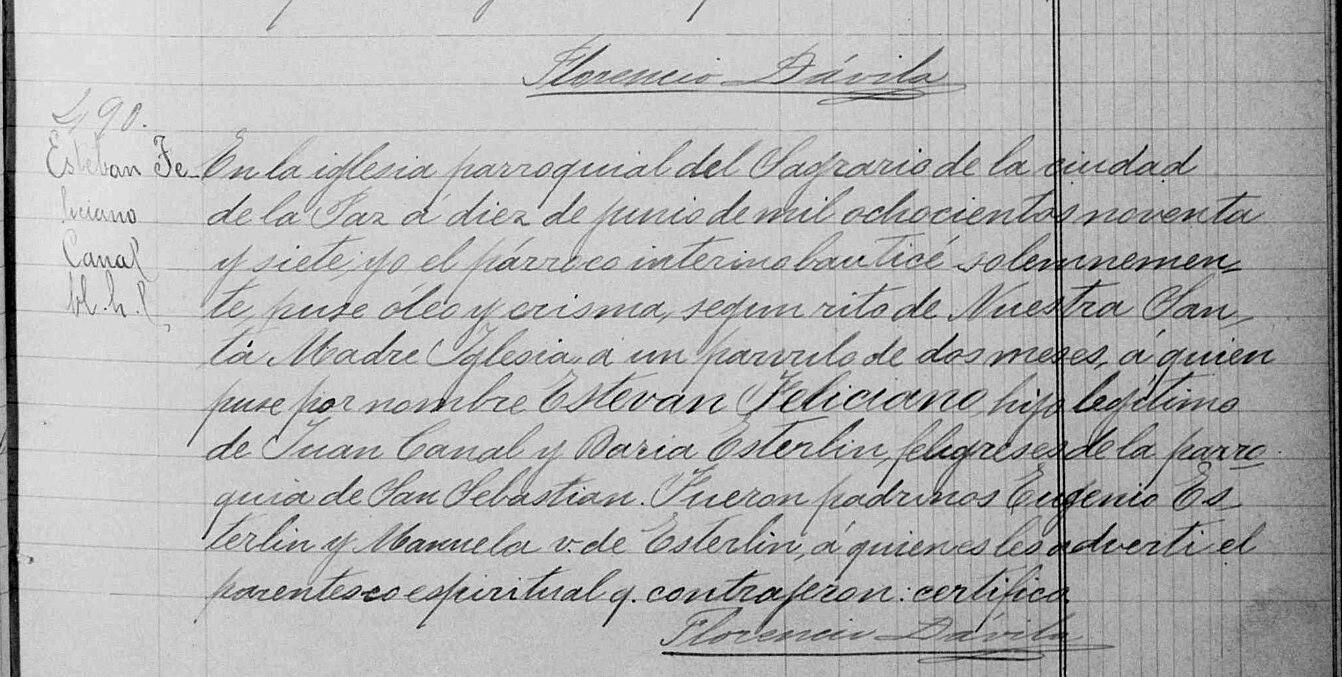 Florencio Dávila
490.
Esteban Fe-
liciano
Canal
bl. h. l.
En la iglesia parroquial del Sagrario de la ciudad
de la Paz á diez de junio de mil ochocientos noventa
y siete; yo el párroco interino bauticé solemnemen-
te, puse óleo y crisma, segun rito de Nuestra San-
ta Madre Iglesia, á un parvulo de dos meses, á quien
puse por nombre Estevan Feliciano, hijo legítimo
de Juan Canal y Daria Esterlin, feligreses de la parro-
quia de San Sebastian. Fueron padrinos Eugenio Es-
terlin y Manuela v. de Esterlin, á quienes les advertí el
parentesco espiritual q. contrajeron: certifico
Florencio Dávila